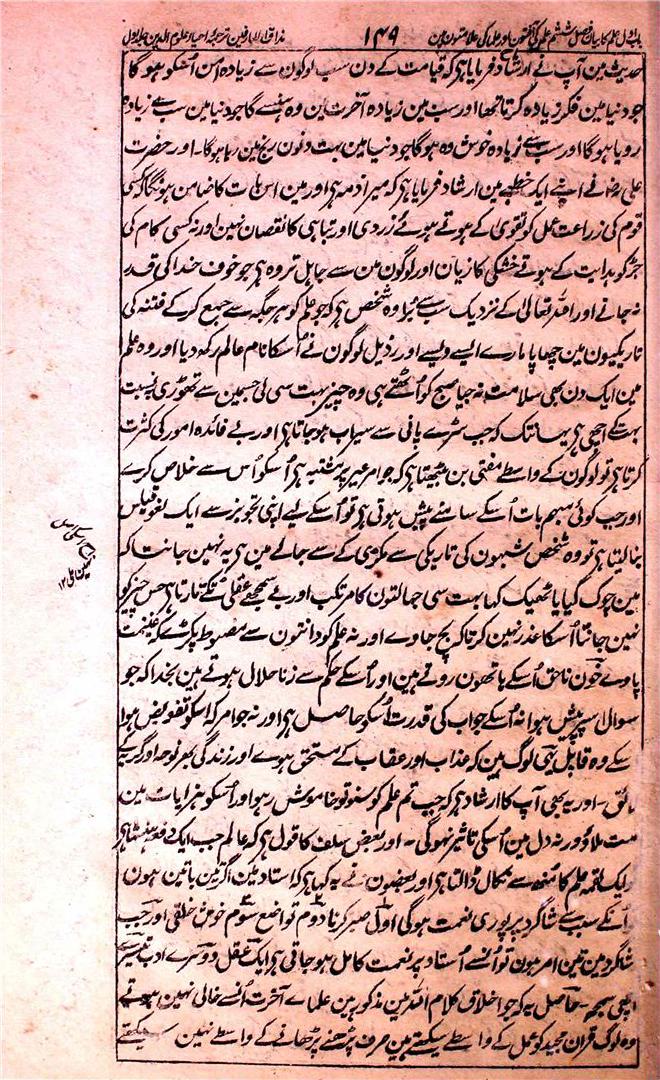 باب اول علم کا بیان فصل ششم علم کی آفتون اور علما کی علامتون مین
۱۴۹
مذاق العارفین ترجمہ احیاء علوم الدین جلد اول
حدیث مین آپ نے ارشاد فرمایا ہی کہ قیامت کے دن سب لوگون سے زیادہ امن اُسکو ہوگا
جو دنیا مین فکر زیادہ کرتا تھا اور سب مین زیادہ آخرت مین وہ ہنسے گا جو دنیا مین سب سے زیادہ
رویا ہوگا اور سب سے زیادہ خوش وہ ہوگا جو دنیا مین بہت دنون رنج مین رہا ہوگا۔ اور حضرت
علی رض نے اپنے ایک خطبے مین ارشاد فرمایا ہی کہ میرا ذمہ ہی اور مین اس بات کا ضامن ہونگا کہ کسی
قوم کی زراعت عمل کو تقویٰ کے ہوتے ہوئے زردی اور تباہی کا نقصان نہین اور نہ کسی کام کی
جڑ کو ہدایت کے ہوتے خشکی کا زیان اور لوگون مین سے جاہل تر وہ ہی جو خوف خدا کی قدر
نہ جانے اور اللہ تعالیٰ کے نزدیک سب سے بُرا وہ شخص ہی کہ جو علم کو ہر جگہ سے جمع کر کے فتنہ کی
تاریکیون مین چھاپا مارے ایسے ویسے اور رذیل لوگون نے اُسکا نام عالم رکھ دیا اور وہ علم
مین ایک دن بھی سلامت نہ جیا صبح کو اُٹھتے ہی وہ چیز بہت سی لی جسمین سے تھوڑی بہ نسبت
بہت کے اچھی ہی یہانتک کہ جب سڑے پانی سے سیراب ہو جاتا ہی اور بے فائدہ امور کی کثرت
کرتا ہی تو لوگون کے واسطے مفتی بن بیٹھتا ہی کہ جو امر غیر پر مشتبہ ہی اُسکو اُس سے خلاص کرے
اور جب کوئی مبہم بات اُسکے سامنے پیش ہوتی ہی تو اُسکے لیے اپنی تجویز سے ایک لغو قیاس
بنا لیتا ہی تو وہ شخص شبہون کی تاریکی سے مکڑی کے سے جالے مین ہی یہ نہین جانتا کہ
مین چوک گیا یا ٹھیک کہا بہت سی جہالتون کا مرتکب اور بے سمجھے عقلی تُکّے مارتا ہی جس چیز کو
نہین جانتا اُسکا عذر نہین کرتا کہ بچ جاوے اور نہ علم کو دانتون سے مضبوط پکڑے کہ غنیمت
پاوے خون ناحق اُسکے ہاتھون روتے ہین اور اُسکے حکم سے زنا حلال ہوتے ہین بخدا کہ جو
سوال اسپر پیش ہوا نہ اُسکے جواب کی قدرت اُسکو حاصل ہی اور نہ جو امر کہ اُسکو تفویض ہوا
اُسکے وہ قابل یہی لوگ ہین کہ عذاب اور عقاب کے مستحق ہوے اور زندگی بھر نوحہ اور گریہ کے
لائق۔ اور یہ بھی آپ کا ارشاد ہی کہ جب تم علم کو سنو تو خاموش رہو اور اُسکو ہزلیات مین
مت ملاؤ ورنہ دل مین اُسکی تاثیر نہوگی۔ اور بعض سلف کا قول ہی کہ عالم جب ایک دفعہ ہنستا ہی
تو ایک لقمہ علم کا منھ سے نکال ڈالتا ہی اور بعضون نے یہ کہا ہی کہ استاد مین اگر تین باتین ہون
تو اُنکے سبب سے شاگرد پر پوری نعمت ہوگی اول صبر کرنا دوم تواضع سوم خوش خلقی اور جب
شاگرد مین تین امر ہون تو اُنسے اُستاد پر نعمت کامل ہو جاتی ہی ایک عقل دوسرے ادب تیسرے
اچھی سمجھ۔ حاصل یہ کہ جو اخلاق کلام اللہ مین مذکور ہین علماے آخرت اُنسے خالی نہین ہوتے
وہ لوگ قرآن مجید کو عمل کے واسطے سیکھتے ہین صرف پڑھنے پڑھانے کے واسطے نہین سیکھتے